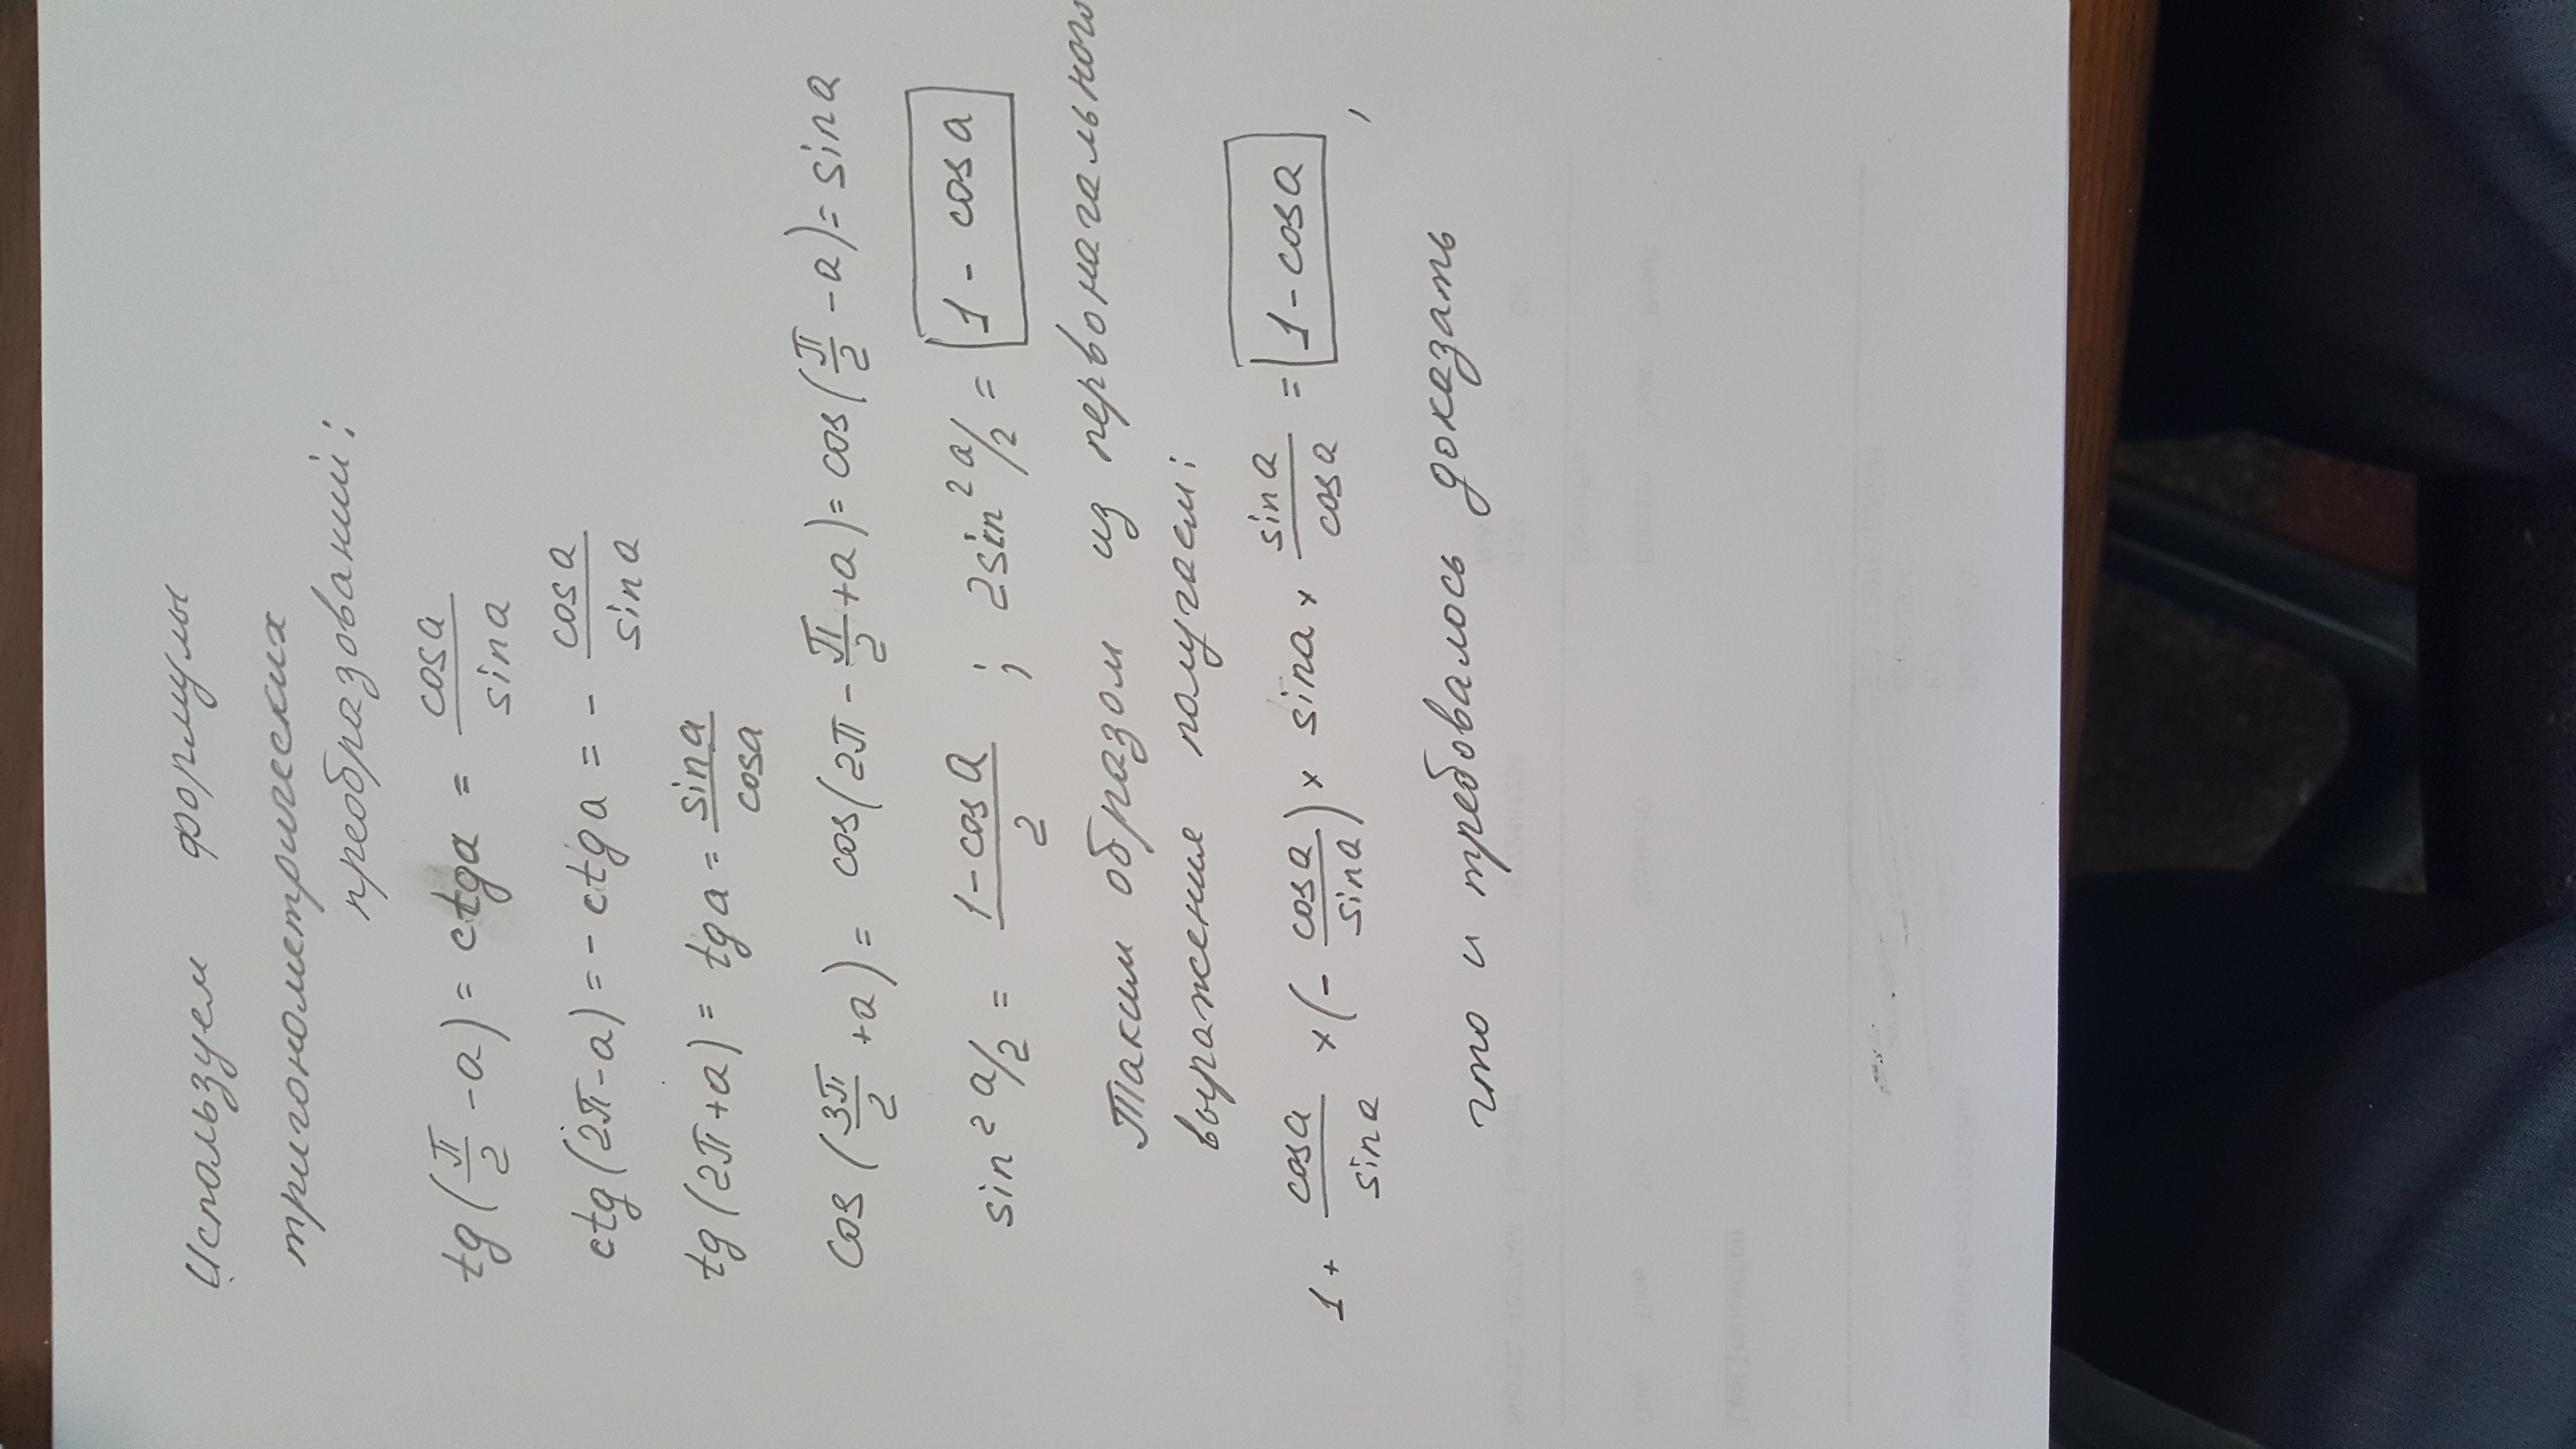 Используем формулы
тригонометрических
преобразований:
tg(π/2 - a) = ctga = cosa/sina
ctg(2π - a) = - ctga = - cosa/sina
tg(2π + a) = tga = sina/cosa
cos(3π/2 + a) = cos(2π - π/2 + a) = cos(π/2 - a) = sina
sin² a/2 = 1 - cosa/2 ; 2sin² a/2 = 1 - cosa
Таким образом из первоначального
выражение получаем:
1 + cosa/sina × (- cosa/sina) × sina × sina/cosa = 1 - cosa ,
что и требовалось доказать